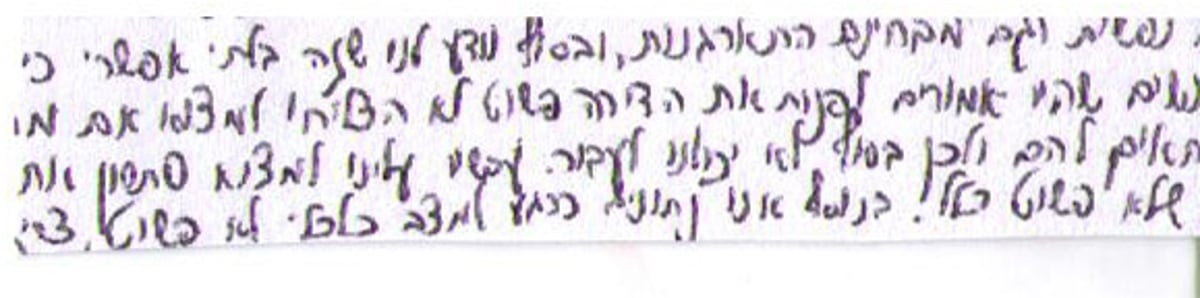 נפשית וגם מבחינת התארגנות, ובסוף נודע לנו שזה בלתי אפשרי כי
שהיו אמורים לפנות את הדירה פשוט לא הצליחו למצוא את
להם ולכן בסוף לא יכולנו לעבור. עכשיו עלינו למצוא פתרון
שלא פשוט בכלל. בנוסף אנו נתונים כרגע למצב כלכלי לא פשוט.